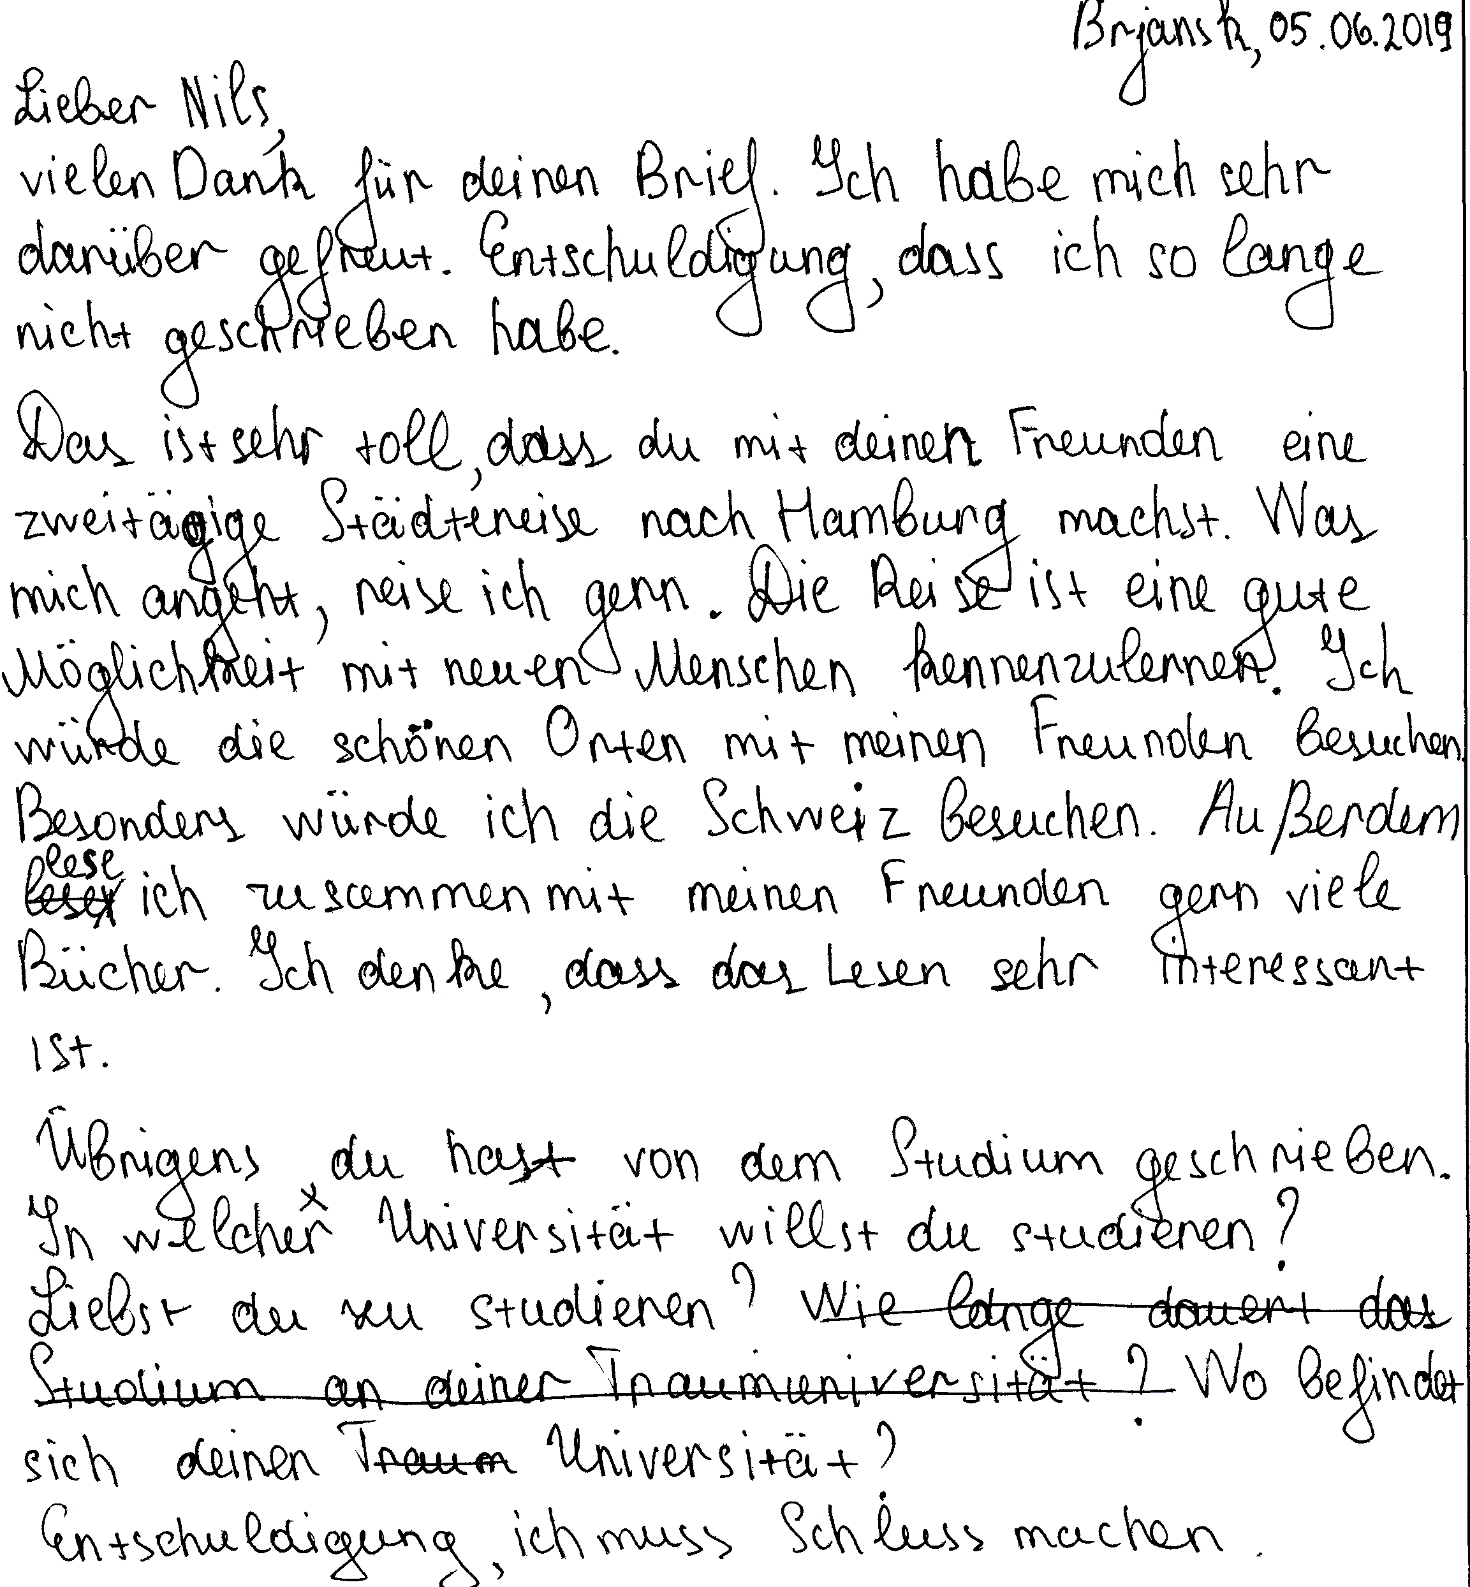 Brjansk, 05.06.2019
Lieber Nils,
vielen Dank für deinen Brief. Ich habe mich sehr
darüber gefreut. Entschuldigung, dass ich so lange
nicht geschrieben habe.
Das ist sehr toll, dass du mit deinen Freunden eine
zweitägige Städtereise nach Hamburg machst. Was
mich angeht, reise ich gern. Die Reise ist eine gute
Möglichkeit mit neuen Menschen kennenzulernen. Ich
würde die schönen Orten mit meinen Freunden besuchen.
Besonders würde ich die Schweiz besuchen. Außerdem
lese ich zusammen mit meinen Freunden gern viele
Bücher. Ich denke, dass das Lesen sehr interessant
ist.
Übrigens du hast von dem Studium geschrieben.
In welcher Universität willst du studieren?
Liebst du zu studieren? Wie lange dauert das
Studium an deiner Traumuniversität? Wo befindet
sich deinen Traum Universität?
Entschuldigung, ich muss Schluss machen.